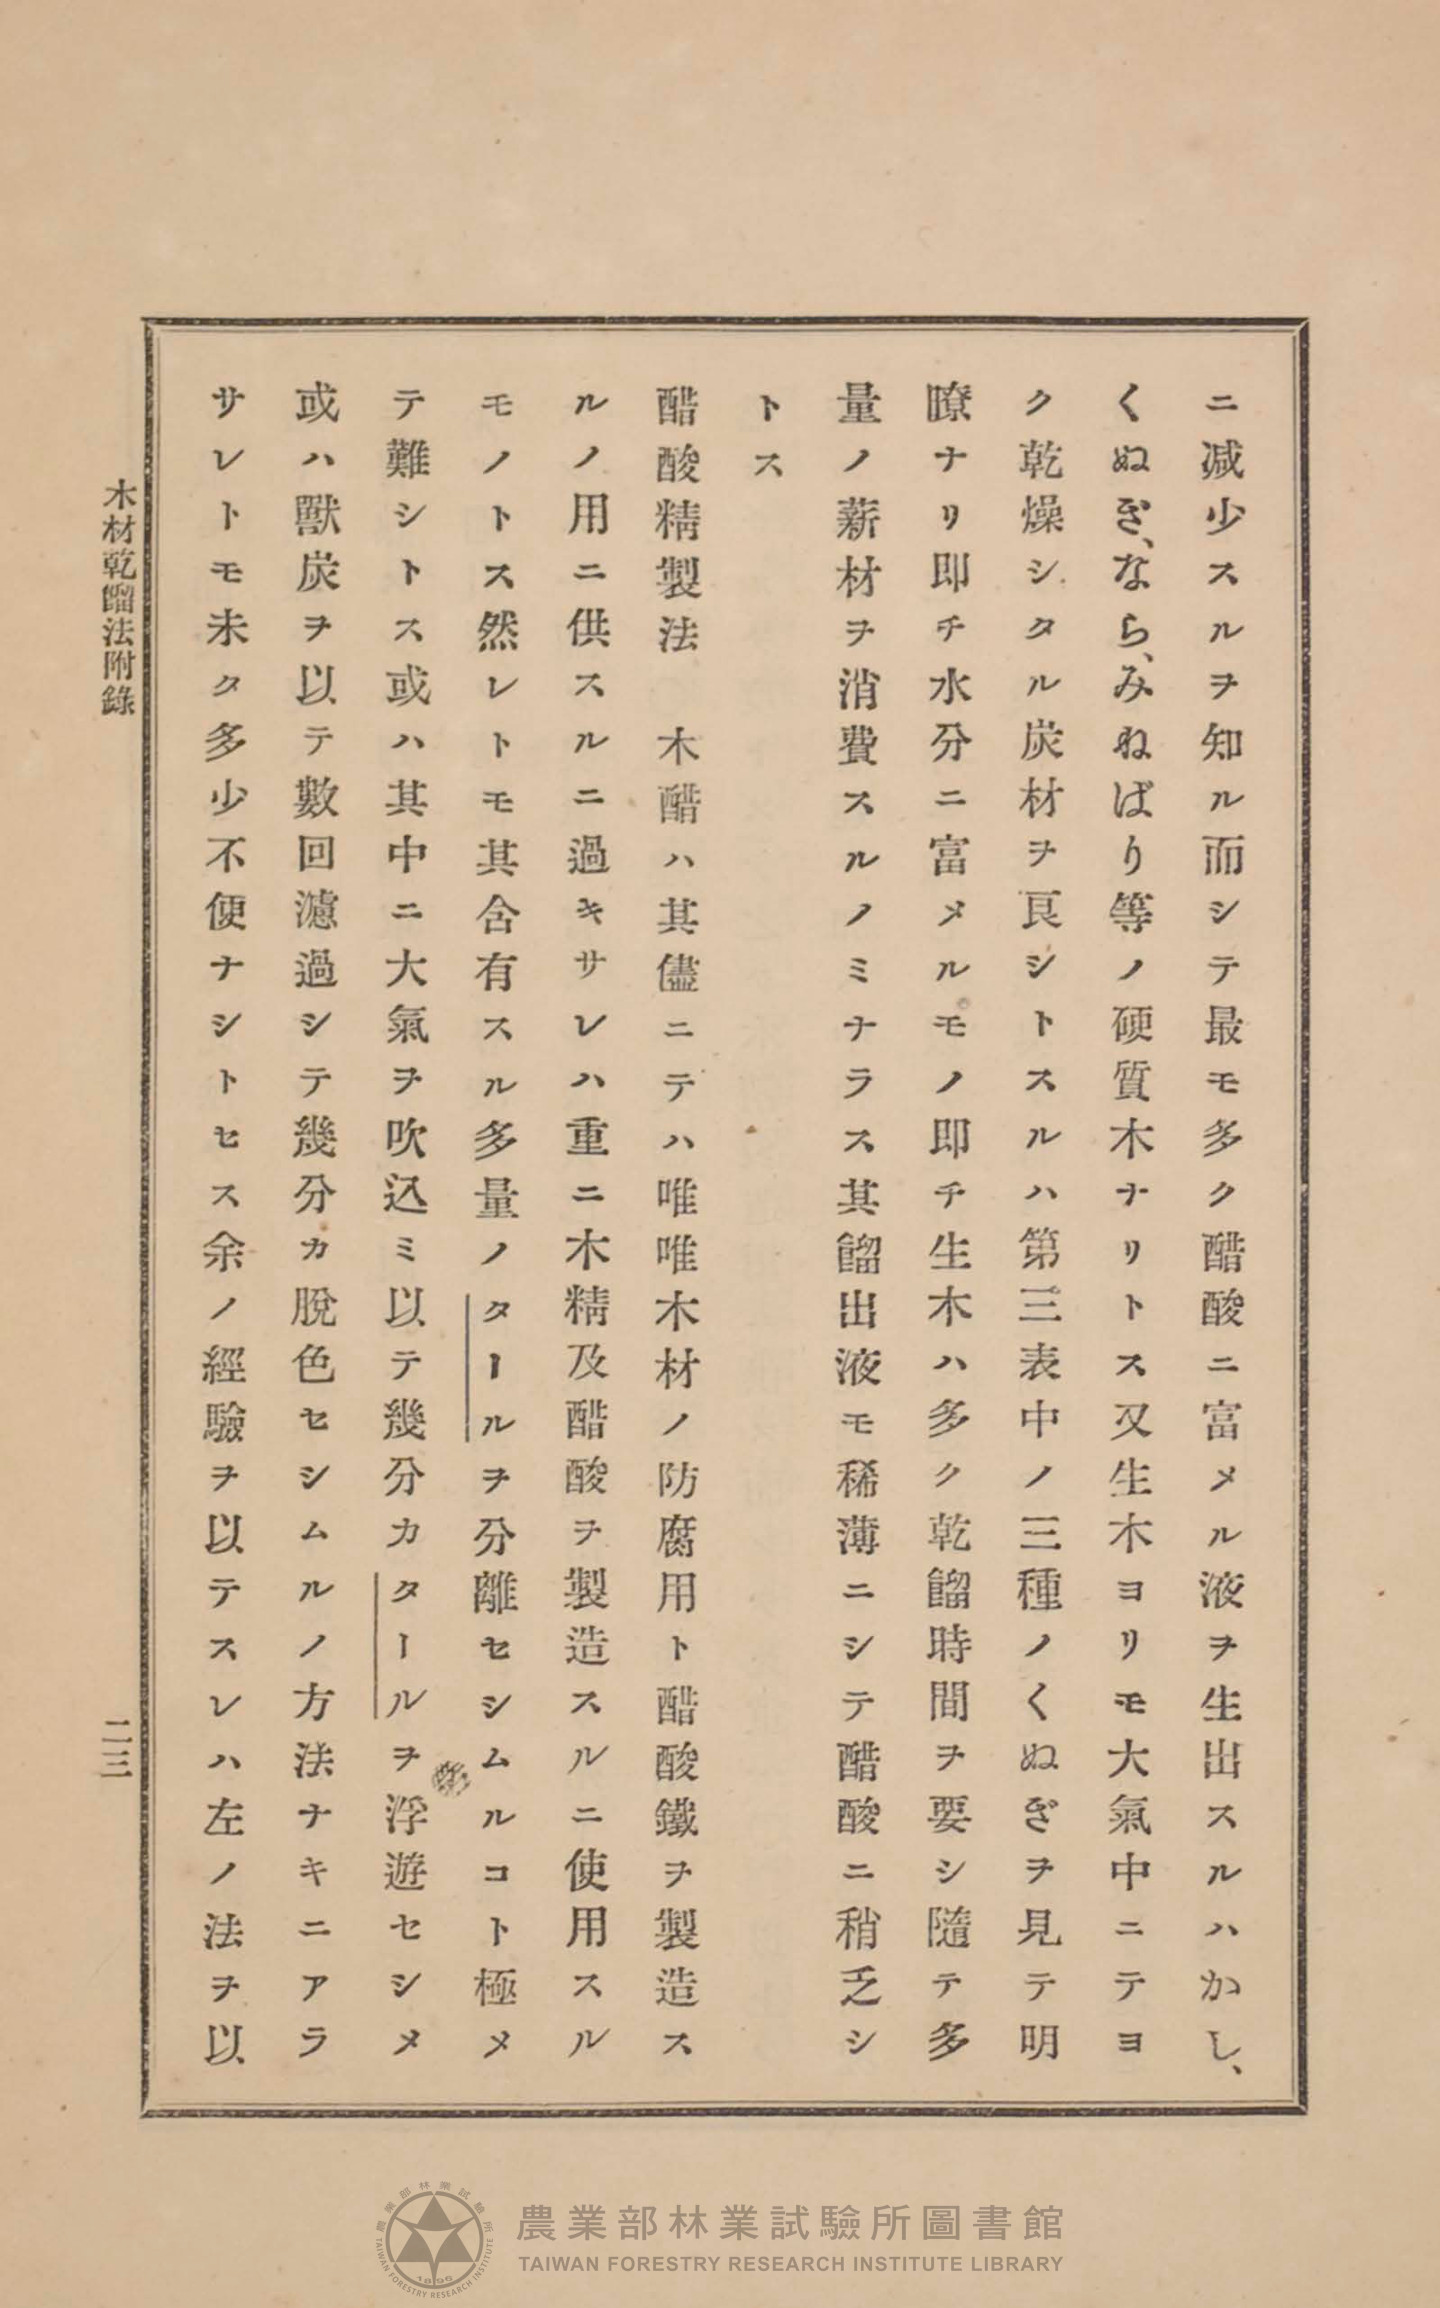 ニ減少スルヲ知ル而シテ最モ多ク醋酸ニ富メル液ヲ生出スルハかし、
くぬぎ、なら、みねばり等ノ硬質木ナリトス又生木ヨリモ大氣中ニテヨ
ク乾燥シタル炭材ヲ良シトスルハ第三表中ノ三種ノくぬぎヲ見テ明
瞭ナリ即チ水分ニ富メルモノ即チ生木ハ多ク乾餾時間ヲ要シ隨テ多
量ノ薪材ヲ消費スルノミナラス其餾出液モ稀薄ニシテ醋酸ニ稍乏シ
トス
醋酸精製法　木醋ハ其儘ニテハ唯唯木材ノ防腐用ト醋酸鐵ヲ製造ス
ルノ用ニ供スルニ過キサレハ重ニ木精及醋酸ヲ製造スルニ使用スル
モノトス然レトモ其含有スル多量ノタールヲ分離セシムルコト極メ
テ難シトス或ハ其中ニ大氣ヲ吹込ミ以テ幾分カタールヲ浮遊セシメ
或ハ獸炭ヲ以テ數回濾過シテ幾分カ脫色セシムルノ方法ナキニアラ
サレトモ未タ多少不便ナシトセス余ノ經驗ヲ以テスレハ左ノ法ヲ以
木材乾餾法附錄
二三
農業部林業試驗所圖書館
TAIWAN FORESTRY RESEARCH INSTITUTE LIBRARY
農業部林業試驗所
TAIWAN FORESTRY RESEARCH INSTITUTE
1896